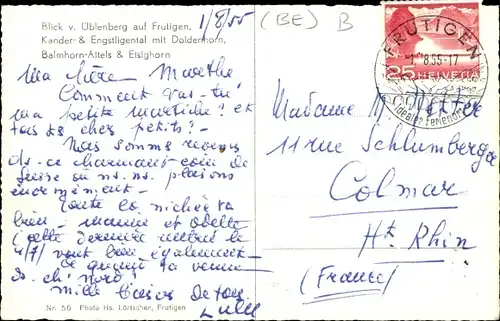 Blick v. Üblenberg auf Frutigen,
Kander- & Engstligental mit Doldenhorn,
Balmhorn-Altels & Elsighorn
1/8/55
(BE) B
Ma chère Marthe
Comment vas-tu
ma petite ? et
tous tes chers petits?
Nous sommes revenus
ds. ce charmant coin de
Suisse où ns. ns. plaisons
énormément
Toute la nichée va
bien - mamie et Odette
(cette dernière
4/7) vont bien également.
ta venue
ds. ch' nord?
Mille baisers de tous
Lulu
Nr. 56 Photo Hs. Lörtscher, Frutigen
FRUTIGEN
1. 8.55-17
25 HELVETIA
Idealer Ferienort
Madame M
11 rue Schlumberger
Colmar
Ht Rhin
(France)